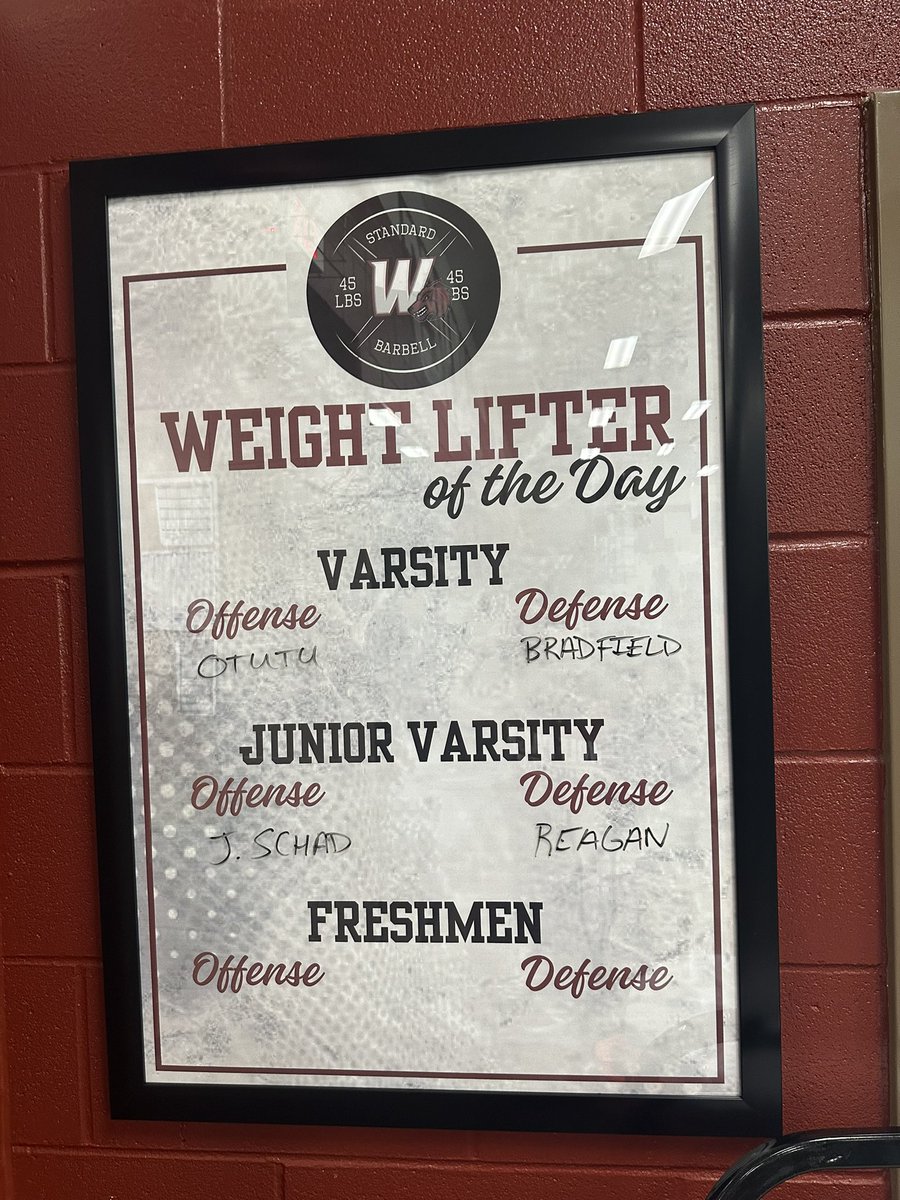 STANDARD
45 LBS
W
45 BS
BARBELL
WEIGHT LIFTER
of the Day
VARSITY
Offense Defense
OTUTU BRADFIELD
JUNIOR VARSITY
Offense Defense
J. SCHAD REAGAN
FRESHMEN
Offense Defense